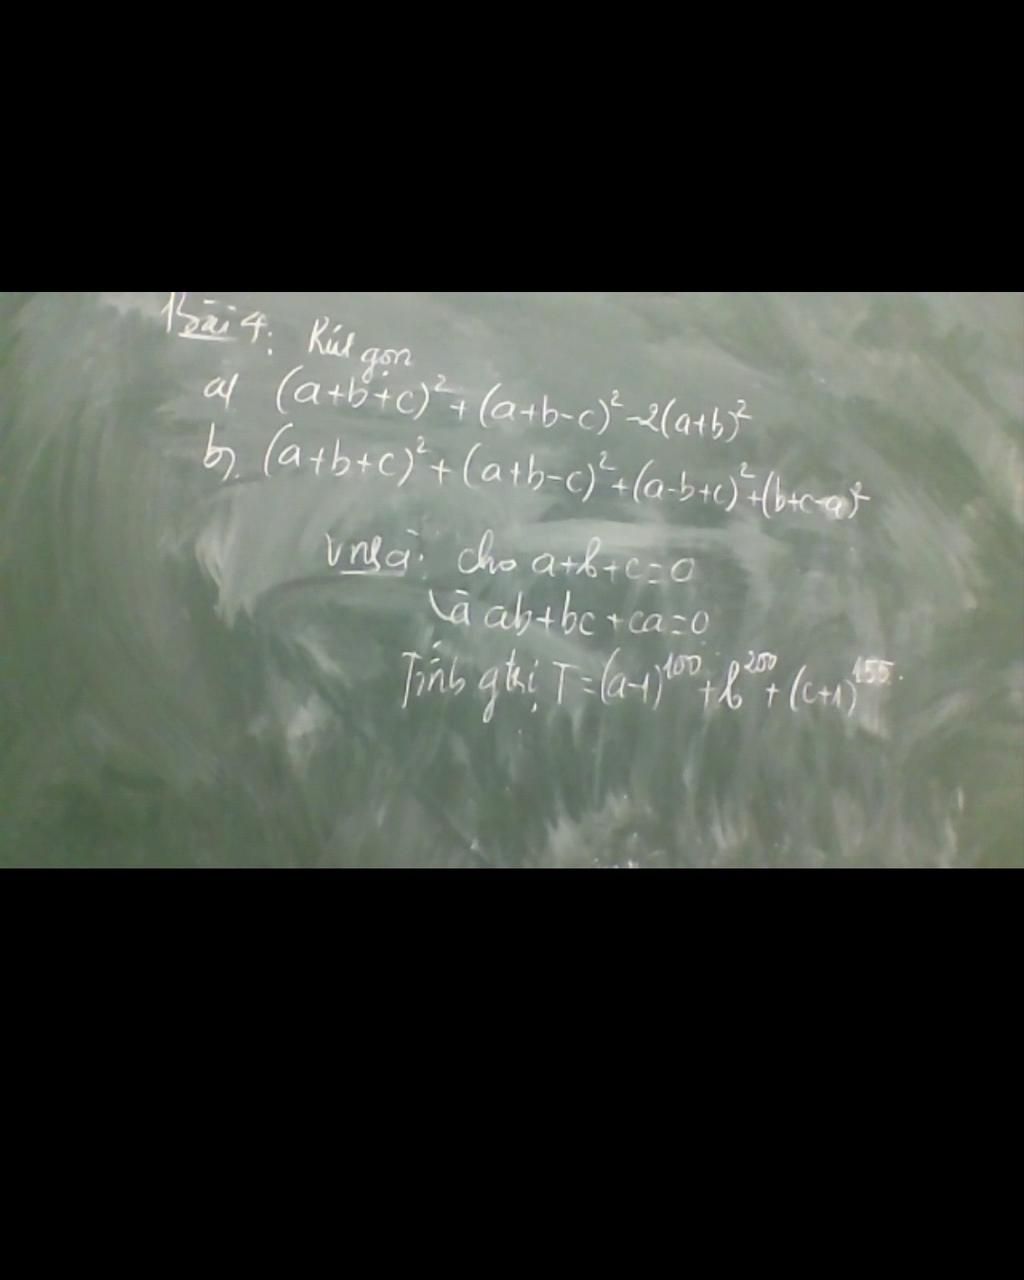 Bài 4: Rút gọn
a) (a+b+c)² + (a+b-c)² - 2(a+b)²
b) (a+b+c)² + (a+b-c)² + (a-b+c)² + (b+c-a)²
cho a+b+c=0
và ab+bc+ca=0
Tính g trị T = (a-1)¹⁰⁰ + b²⁰⁰ + (c+1)¹⁵⁵.